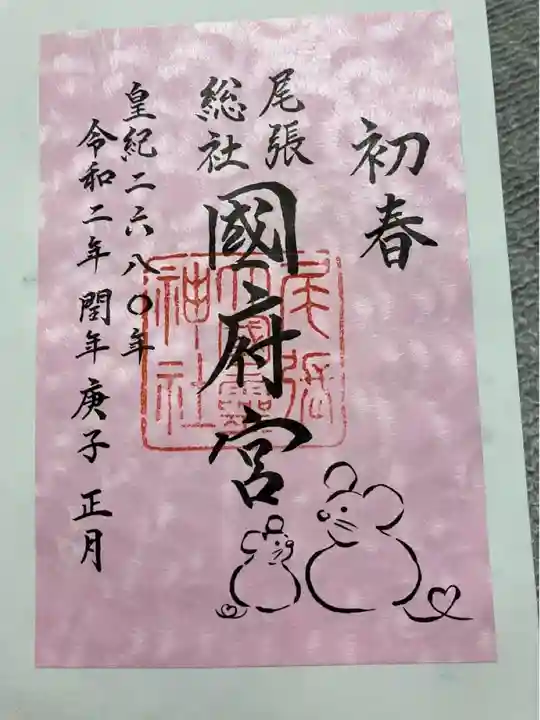 初春
尾張
総社
國府宮
皇紀二六八〇年
令和二年 閏年 庚子 正月
尾張
大國霊
神社